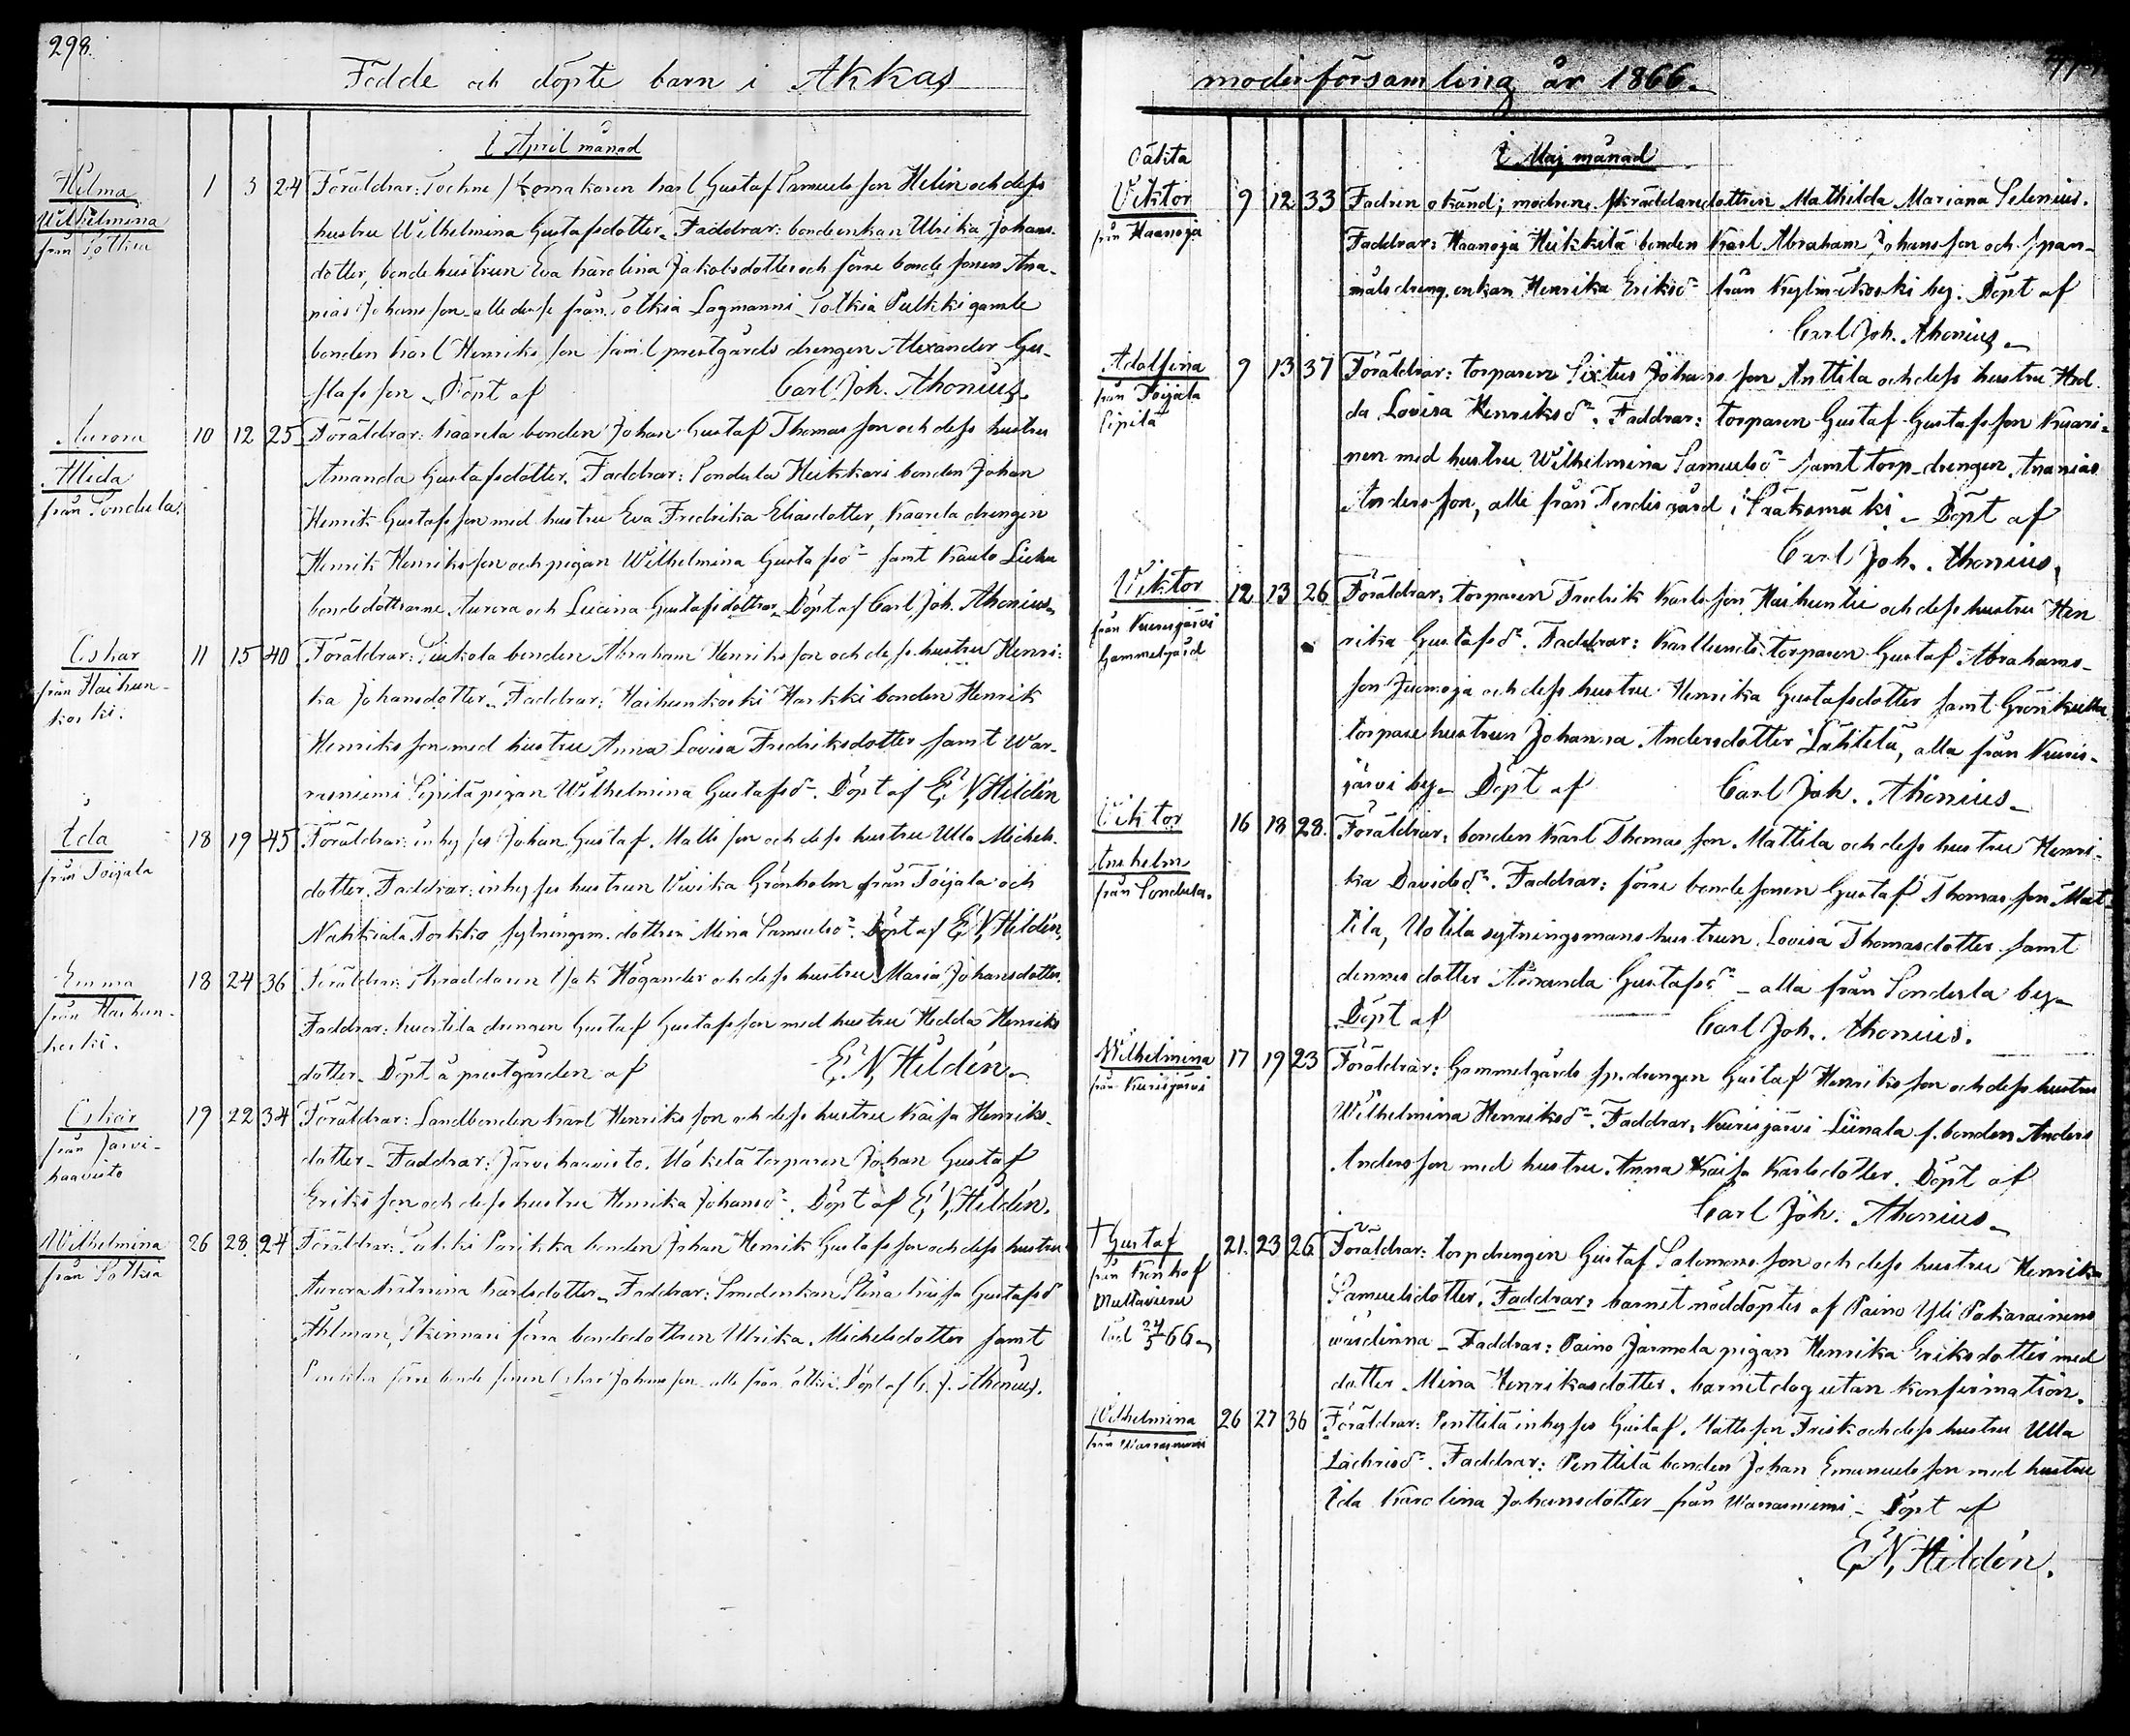 298.
Födde och döpte barn i Akkas
I April månad
Hilma
Wilhelmina
från Sotkia
1 3 24 Föräldrar: Sockne skomakaren Karl Gustaf Samuelsson Helin och dess
hustru Wilhelmina Gustafsdotter. Faddrar: bondeenkan Ulrika Johans-
dotter, bondehustrun Eva Karolina Jakobsdotter och förre bondesonen Ana-
nias Johansson alle dessa från Sotkia Lagmanni, Sotkia Pulkki gamle
bonden Karl Henriksson samt prestgårds drengen Alexander Gu-
stafsson. Döpt af Carl Joh. Ahonius.
Aurora
Alida
från Sondula.
10 12 25 Föräldrar: Kaarela bonden Johan Gustaf Thomasson och dess hustru
Amanda Gustafsdotter. Faddrar: Sondula Heikkari bonden Johan
Henrik Gustafsson med hustru Eva Fredrika Eliasdotter, Kaarela drengen
Henrik Henriksson och pigan Wilhelmina Gustafsdr samt
bondedöttrarne Aurora och Lucina Gustafsdöttrar. Döpt af Carl Joh. Ahonius.
Oskar
från Haihun-
koski.
11 15 40 Föräldrar: bonden Abraham Henriksson och dess hustru Henri-
ka Johansdotter. Faddrar: Haihunkoski Harkki bonden Henrik
Henriksson med hustru Anna Lovisa Fredriksdotter samt War-
rasniemi Sipilä pigan Wilhelmina Gustafsdr. Döpt af E. N. Hildén
Ida
från Toijala
18 19 45 Föräldrar: inhyses Johan Gustaf Mattsson och dess hustru Ulla Michels-
dotter. Faddrar: inhyses hustrun Vivika Grönholm från Toijala och
Nahkiala Torkko sytningsm. dottren Mina Samuelsdr. Döpt af E. N. Hildén.
Emma
från Haihun-
koski.
18 24 36 Föräldrar: Skräddaren Isak Högander och dess hustru Maria Johansdotter.
Faddrar: drengen Gustaf Gustafsson med hustru Hedda Henriks
dotter. Döpt å prestgården af E. N. Hildén.
Oskar
från Jarvi-
haavisto
19 22 34 Föräldrar: Landbonden Karl Henriksson och dess hustru Kaisa Henriks-
dotter. Faddrar: Järvihaavisto torparen Johan Gustaf
Eriksson och dess hustru Henrika Johansdr. Döpt af E. N. Hildén.
Wilhelmina
från Sotkia
26 28 24 Föräldrar: Parikka bonden Johan Henrik Gustafsson och dess hustru
Aurora Katrina Karlsdotter. Faddrar: Smedenkan Stina Kaisa Gustafsdr
Ahlman, Skinnari förra bondedottren Ulrika Michelsdotter samt
förre bonde sonen Oskar Johansson alla från Sotkia. Döpt af C. J. Ahonius.
moderförsamling år 1866.
I Maj månad
Oäkta
Viktor
från Haanoja
9 12 33 Fadren okänd; modren: skräddaredottren Mathilda Mariana Selenius.
Faddrar: Haanoja Heikkilä bonden Karl Abraham Johansson och span-
målsdreng enkan Henrika Eriksdr från Kylmäkoski by. Döpt af
Carl Joh. Ahonius.
Adolfina
från Toijala
Sipilä
9 13 37 Föräldrar: torparen Sixtus Johansson Anttila och dess hustru Hed
da Lovisa Henriksdr. Faddrar: torparen Gustaf Gustafsson Kaari-
nen med hustru Wilhelmina Samuelsdr samt torp-drengen Ananias
Andersson, alle från Terdisgård i Sääksmäki. Döpt af
Carl Joh. Ahonius.
Viktor
från Kurisjärvi
Gammelgård
12 13 26 Föräldrar: torparen Fredrik Karlsson Haihuntie och dess hustru Hen
rika Gustafsdr. Faddrar: Karllunds torparen Gustaf Abrahams-
son Juomoja och dess hustru Henrika Gustafsdotter samt Grönkulla
torparehustrun Johanna Andersdotter Lahtela, alla från Kuris-
järvi by. Döpt af Carl Joh. Ahonius.
Viktor
Anshelm
från Sondula.
16 18 28. Föräldrar: bonden Karl Thomasson Mattila och dess hustru Henri-
ka Davidsdr. Faddrar: förre bondesonen Gustaf Thomasson Mat-
tila, Uotila sytningsmanshustrun Lovisa Thomasdotter samt
dennes dotter Amanda Gustafsdr alla från Sondula by.
Döpt af Carl Joh. Ahonius.
Wilhelmina
från Kurisjärvi
17 19 23 Föräldrar: Gammelgårds sp.drengen Gustaf Henriksson och dess hustru
Wilhelmina Henriksdr. Faddrar: Kurisjärvi Liinala f. bonden Anders
Andersson med hustru Anna Kaisa Karlsdotter. Döpt af
Carl Joh. Ahonius.
† Gustaf
från Kenhof
Multavieru
död 24/5 66.
21. 23 26. Föräldrar: torpdrengen Gustaf Salomonsson och dess hustru Henrika
Samuelsdotter. Faddrar: barnet nöddöptes af Paino Yli Pakarainens
wärdinna. Faddrar: Paino Jarmola pigan Henrika Eriksdotter med
dotter Mina Henrikasdotter. barnet dog utan konfirmation.
Wilhelmina
från Warrasniemi
26 27 36 Föräldrar: Penttilä inhyses Gustaf Mattsson Frisk och dess hustru Ulla
Zachrisdr. Faddrar: Penttilä bonden Johan Emanuelsson med hustru
Ida Karolina Johansdotter från Warrasniemi. Döpt af
E. N. Hildén.